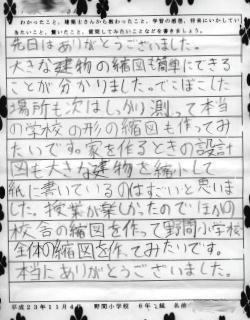 わかったこと、建築士さんから教わったこと、学習の感想、将来にいかしてい
きたいこと、驚いたこと、質問してみたいことなどを書きましょう。
先日はありがとうございました。
大きな建物の縮図も簡単にできる
ことが分かりました。でこぼこした
場所も次はしっかり測って本当
の学校の形の縮図も作ってみ
たいです。家を作るときの設計
図も大きな建物を縮小して
紙に書いているのはすごいと思いま
した。授業が楽しかったのでほかの
校舎の縮図を作って野間小学校
全体の縮図を作ってみたいです。
本当にありがとうございました。
平成23年11月4日 野間小学校 6年 組 名前